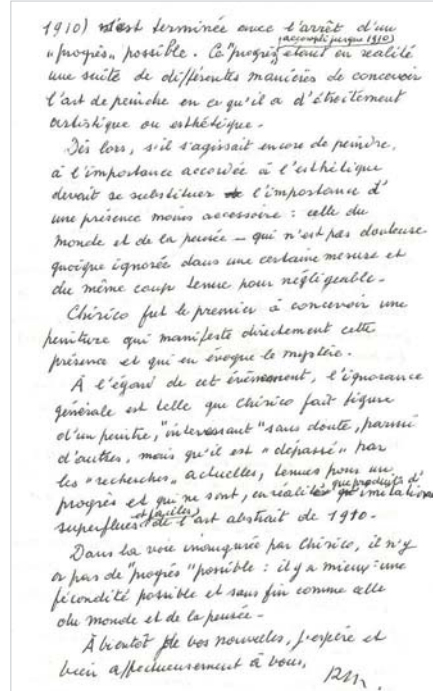 1910) s'est terminée avec l'arrêt d'un
"progrès" possible. Ce "progrès" (accompli jusque 1910) était en réalité
une suite de différentes manières de concevoir
l'art de peindre en ce qu'il a d'étroitement
artistique ou esthétique.
Dès lors, s'il s'agissait encore de peindre,
à l'importance accordée à l'esthétique
devait se substituer l'importance d'
une présence moins accessoire : celle du
monde et de la pensée — qui n'est pas douteuse
quoique ignorée dans une certaine mesure et
du même coup tenue pour négligeable.
Chirico fut le premier à concevoir une
peinture qui manifeste directement cette
présence et qui en évoque le mystère.
À l'égard de cet événement, l'ignorance
générale est telle que Chirico fait figure
d'un peintre, "intéressant" sans doute, parmi
d'autres, mais qu'il est "dépassé" par
les "recherches" actuelles, tenues pour un
progrès et qui ne sont, en réalité que produits d'imitations
superflues et faciles de l'art abstrait de 1910.
Dans la voie inaugurée par Chirico, il n'y
a pas de "progrès" possible : il y a mieux : une
fécondité possible et sans fin comme celle
du monde et de la pensée.
À bientôt de vos nouvelles, j'espère et
bien affectueusement à vous,
RM.